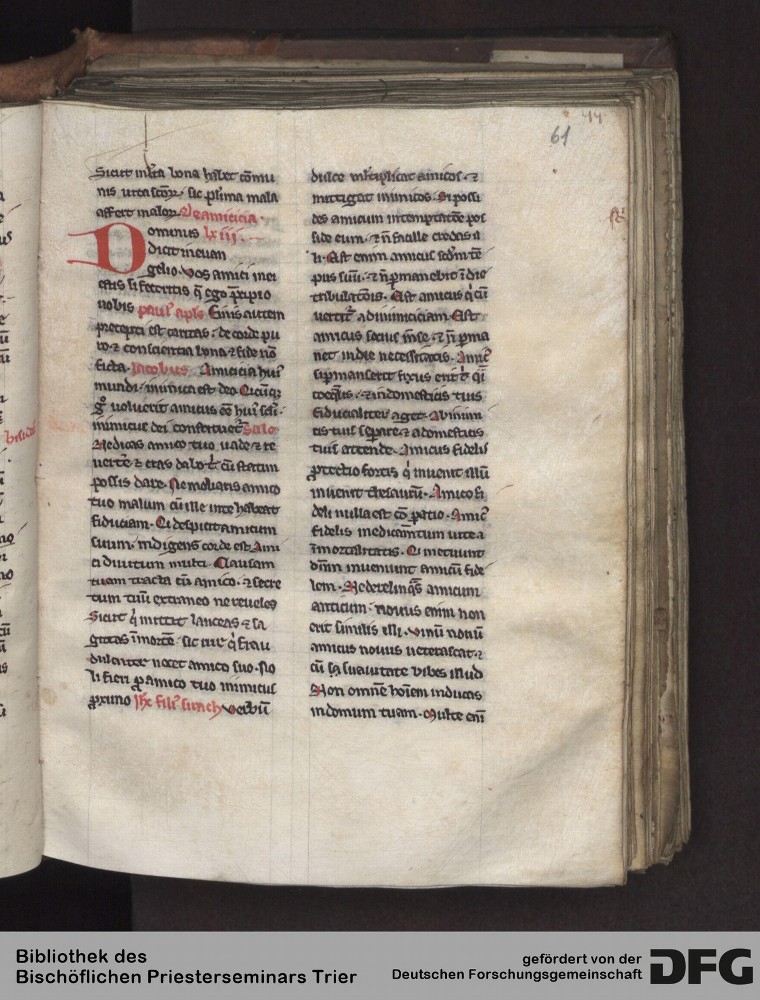 61
44
Sicut m̄lta bona habet cōmu
nis uita scōꝝ. sic plima mala
affert maloꝝ. De amicicia.
Dominus lxiii.
dicit in euan
gelio. Vos amici mei
estis si feceritis q̄ ego p̄cipio
uobis paul' apl's Finis autem
precepti est caritas. de corde pu
ro. ⁊ conscientia bona ⁊ fide nō
ficta. Jacobus. Amicicia hui'
mundi inimica est deo. Quicūq;
gͦ uoluerit amicus eē hui' sc̄li.
inimicus dei constituet᷑. Salo
Ne dicas amico tuo uade ⁊ re
uert'e ⁊ cras dabo t' cū statim
possis dare. Ne moliaris amico
tuo malum cū ille in te habeat
fiduciam. Qi despicit amicum
suum. indigens corde est. Ami
ci diuitum multi. Causam
tuam tracta cū amico. ⁊ secre
tum tuū extraneo ne reueles
Sicut q' mittit lanceas ⁊ sa
gittas ī morte. sic uir q' frau
dulenter nocet amico suo. No
li fieri ꝓ amico tuo inimicus
ꝓximo Ihc fili' sirach Verbū
dulce m̄ltiplicat amicos. ⁊
mittigat inimicos. Si possi
des amicum in temptatōe pos
side eum. ⁊ n̄ facile credas il
li. Est enim amicus scd'm tē
pus suū. ⁊ n̄ ꝑmanebit ī die
tribulatōis. Est amicus q' cū
uertit᷑ ad inimiciciam. Est
amicus socius mēse. ⁊ n̄ ꝑma
net in die necessitatis. Amic'
si ꝑmanserit fixus erit t' q̄i
coeq̄lis. ⁊ in domesticis tuis
fiducialiter aget. Ab inimi
cis tuis separe. ⁊ a domesticis
tuis attende. Amicus fidelis
ꝓtectio fortis q' inuenit illū
inuenit thesaurū. Amico fi
deli nulla est cōparatio. Amic'
fidelis medicam̄tum uite ⁊
īmortalitatis. Qi metuunt
dn̄m inueniunt amicū fide
lem. Ne derelinq̄s amicum
anticum. nouus enim non
erit similis illi. Vinū nouū
amicus nouus ueterascat. ⁊
cū suauitate bibes illud
Non omnē hoīem inducas
in domum tuam. Multe enī
Bibliothek des
Bischöflichen Priesterseminars Trier
gefördert von der
Deutschen Forschungsgemeinschaft
DFG